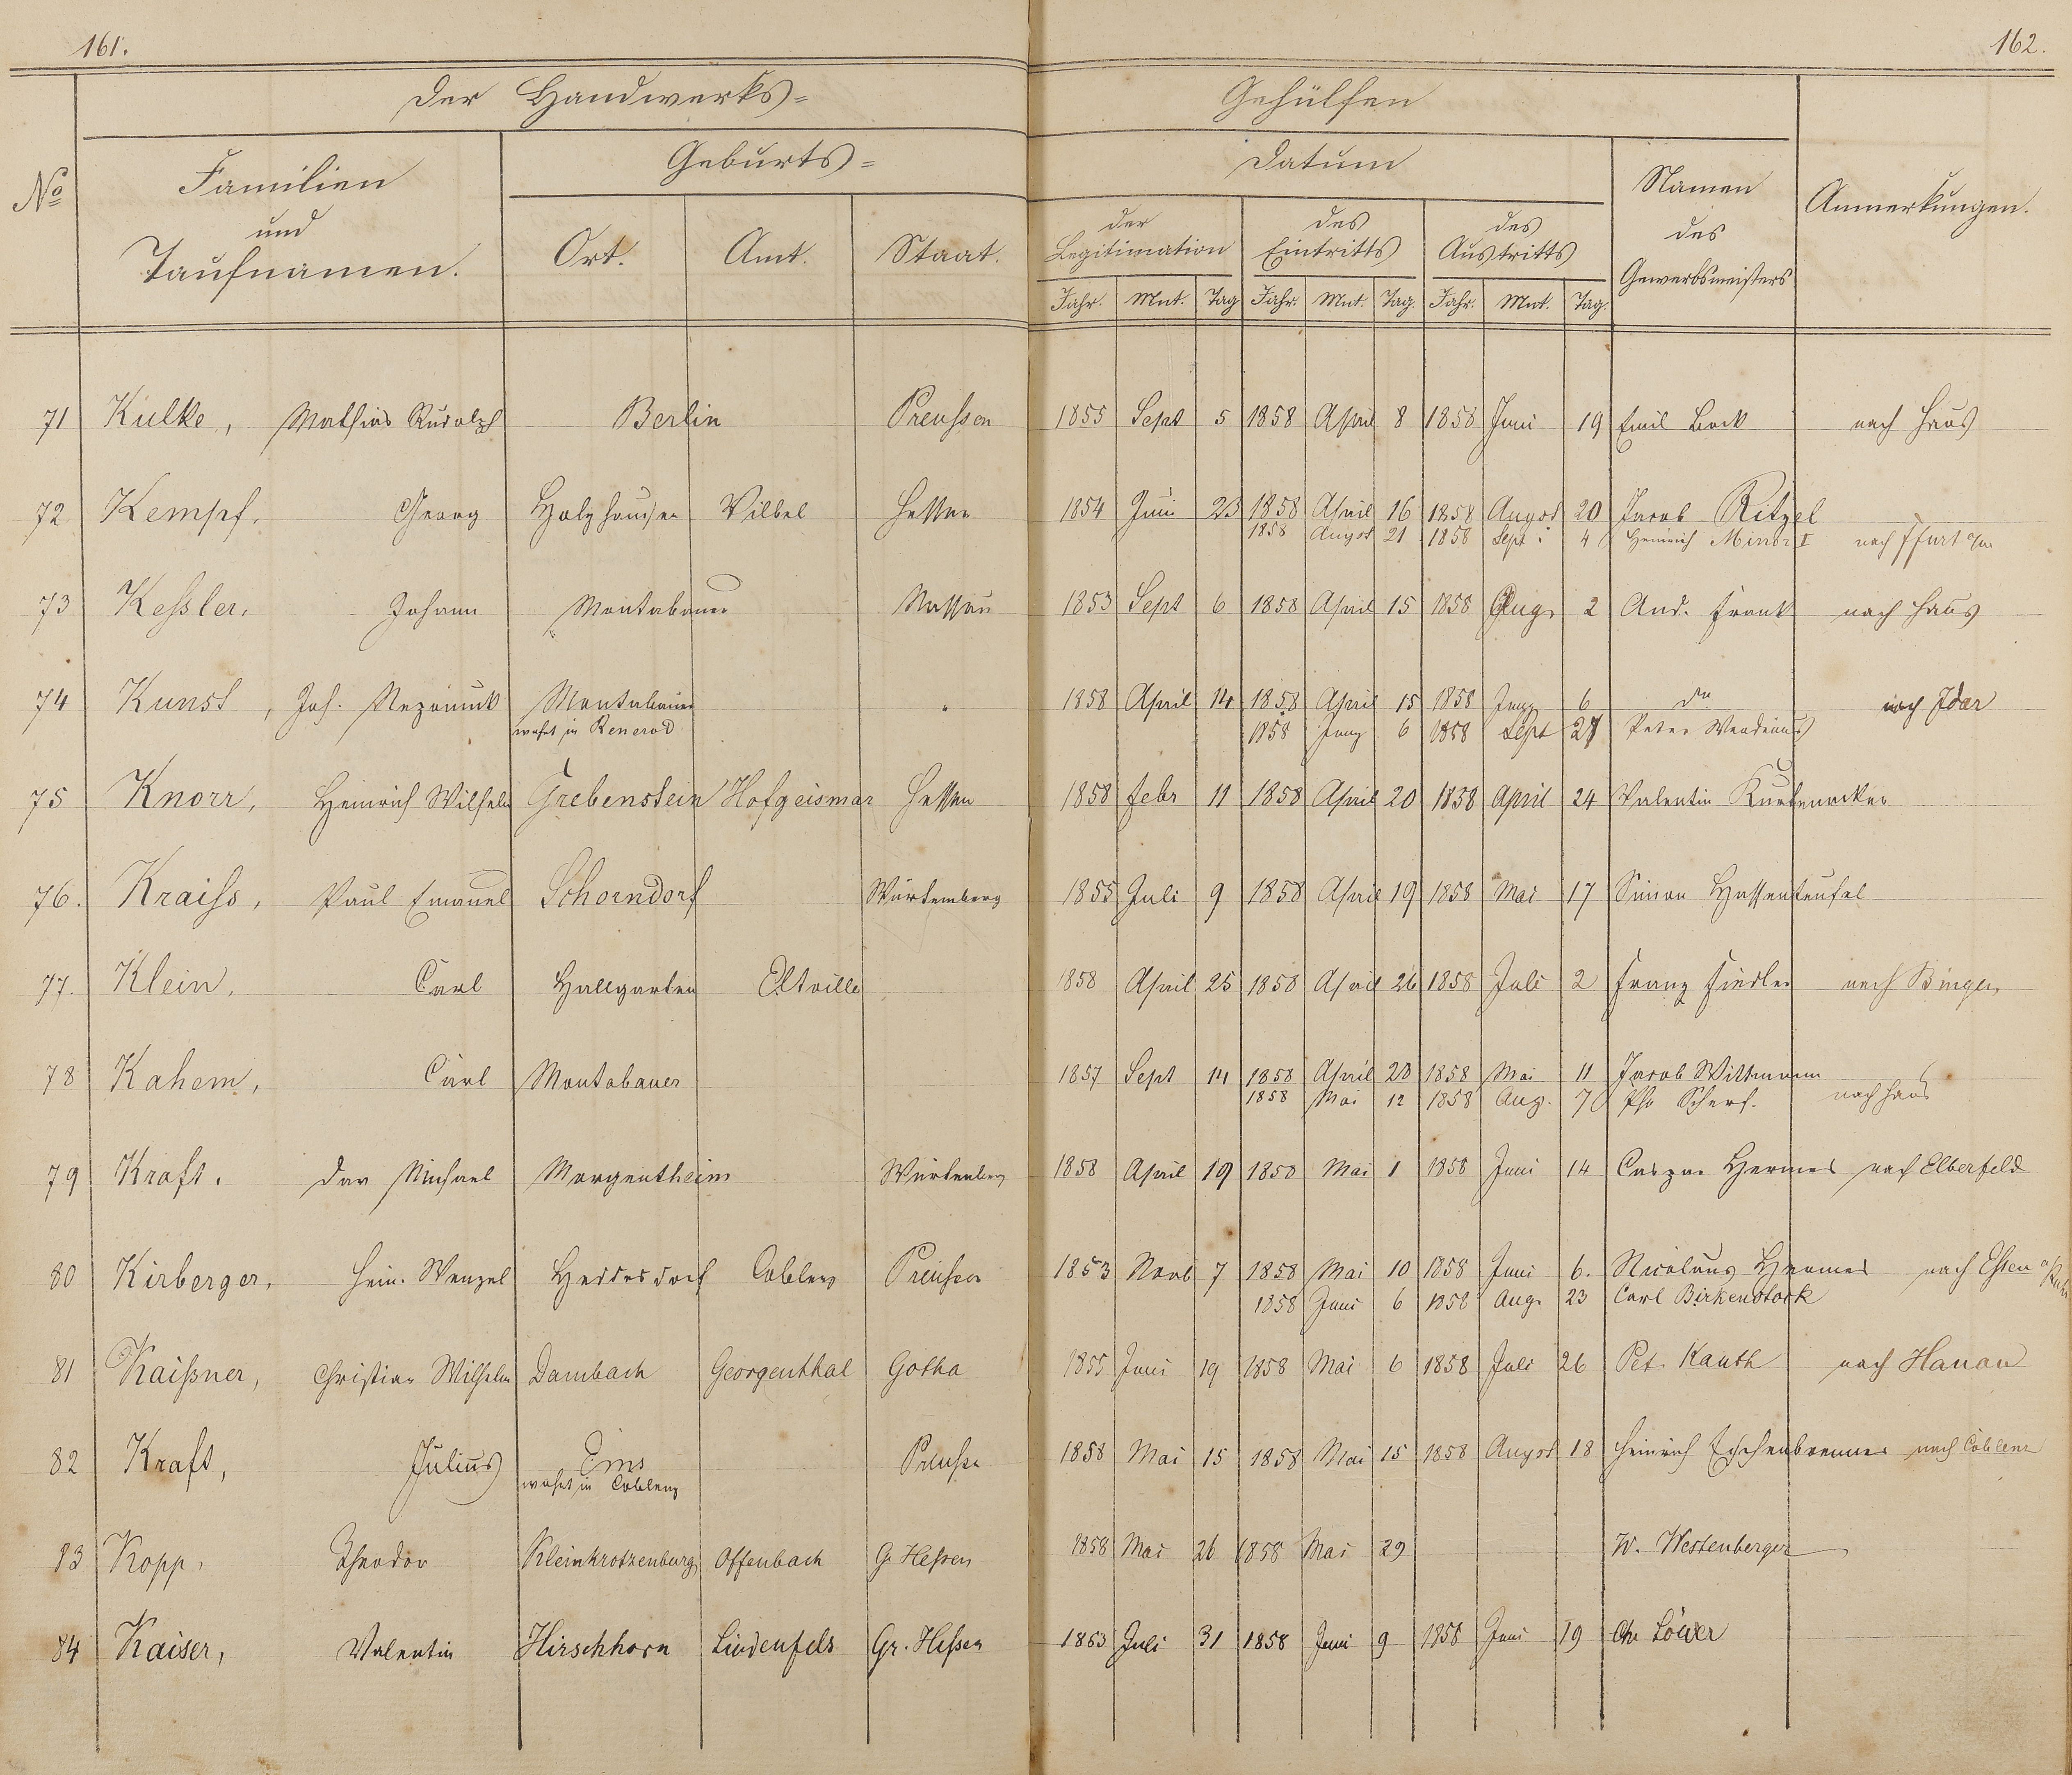 161.
162.
Der Handwerks=
Gehülfen
No
Familien
und
Taufnamen.
Geburts=
Ort.
Amt.
Staat.
Datum
der
Legitimation
des
Eintritts
des
Austritts
Jahr. Mnt. Tag Jahr. Mnt. Tag. Jahr. Mnt. Tag.
Namen
des
Gewerbsmeisters
Anmerkungen.
71 Kulke, Mathias Rudolph Berlin Preußen 1855 Sept 5 1858 April 8 1858 Juni 19 Emil Bock nach Haus
72 Kempf. Georg Holzhausen Vilbel Hessen 1854 Juni 23 1858 April 16 1858 August 20 Jacob Ritzel
1858 August 21 1858 Sept. 4 Heinrich Minor I nach Ffurt a/m
73 Keßler. Johann Montabauer Nassau 1853 Sept 6 1858 April 15 1858 Aug. 2 And. Frank nach Haus
74 Kunst, Joh. Nepomuk Montabauer " 1858 April 14 1858 April 15 1858 Juny 6 do nach Idar
wohnt in Renerod 1858 Juny 6 1858 Sept 27 Peter
75 Knorr, Heinrich Wilhelm Grebenstein Hofgeismar Hessen 1858 Febr 11 1858 April 20 1858 April 24 Valentin
76. Kraiß, Paul Emanuel Schorndorf Würtemberg 1855 Juli 9 1858 April 19 1858 Mai 17 Simon Hassenteufel
77. Klein, Carl Hallgarten Eltville 1858 April 25 1858 April 26 1858 Juli 2 Franz Fiedler nach Bingen
78 Kahem, Carl Montabauer 1857 Sept 14 1858 April 28 1858 Mai 11 Jacob Wittmann
1858 Mai 12 1858 Aug. 7 Scherf. nach Haus
79 Kraft. Michael Mergentheim Würtenberg 1858 April 19 1858 Mai 1 1858 Juni 14 Caspar Hermes nach Elberfeld
80 Kirberger, Hein. Wenzel Heddesdorf Coblenz Preußen 1853 Novb 7 1858 Mai 10 1858 Juni 6. Nicolaus Hermes nach Essen a/Ruhr
1858 Juni 6 1858 Aug. 23 Carl Birkenstock
81 Kaißner, Christian Wilhelm Dambach Georgenthal Gotha 1855 Juni 19 1858 Mai 6 1858 Juli 26 Pet. Kauth nach Hanau
82 Kraft, Julius Ems Preuße 1858 Mai 15 1858 Mai 15 1858 August 18 Heinrich Eschenbrenner nach Coblenz
wohnt in Coblenz
83 Kopp, Theodor Kleinkrotzenburg Offenbach G. Heßen 1858 Mai 26 1858 Mai 29 W. Westenberger
84 Kaiser, Valentin Hirschhorn Lindenfels Gr. Heßen 1853 Juli 31 1858 Juni 9 1858 Juni 19 Chr Löwer